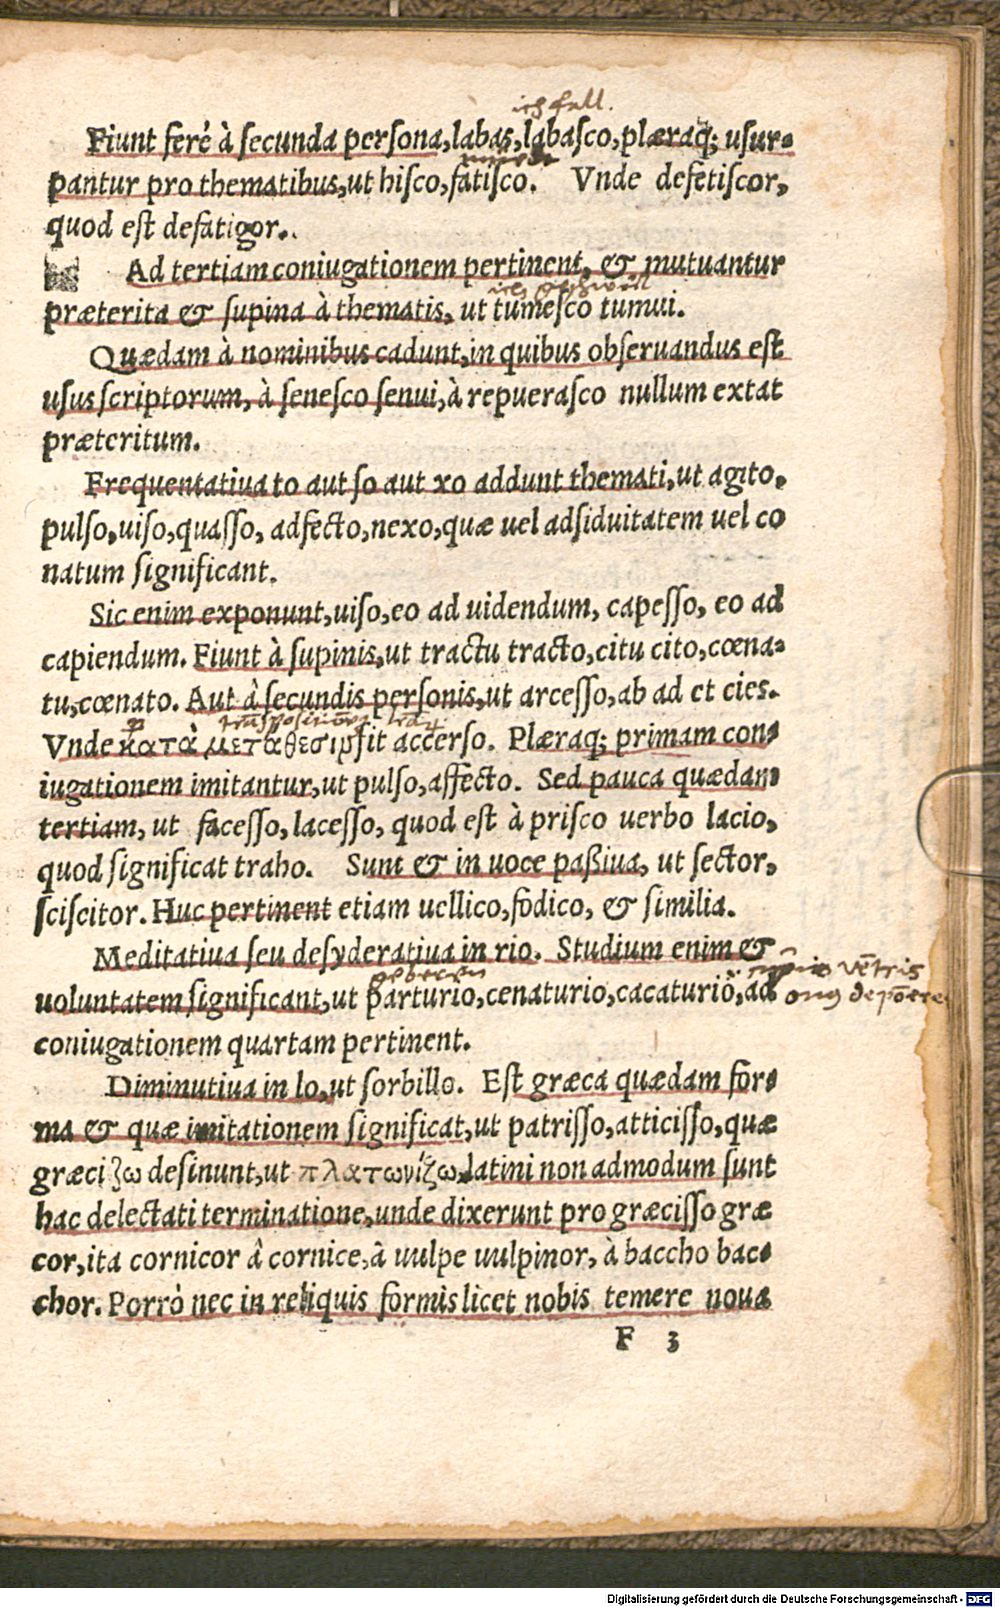 ich fall.
Fiunt ferè à secunda persona, labas, labasco, plæraq; usur-
pantur pro thematibus, ut hisco, fatisco. Vnde defetiscor,
quod est defatigor.
Ad tertiam coniugationem pertinent, & mutuantur
præterita & supina à thematis, ut tumesco tumui.
Quædam à nominibus cadunt, in quibus obseruandus est
usus scriptorum, à senesco senui, à repuerasco nullum extat
præteritum.
Frequentatiua to aut so aut xo addunt themati, ut agito,
pulso, uiso, quasso, adfecto, nexo, quæ uel adsiduitatem uel co
natum significant.
Sic enim exponunt, uiso, eo ad uidendum, capesso, eo ad
capiendum. Fiunt à supinis, ut tractu tracto, citu cito, cœna-
tu, cœnato. Aut à secundis personis, ut arcesso, ab ad et cies.
Vnde κατὰ μετάθεσιν fit accerso. Plæraq; primam con-
iugationem imitantur, ut pulso, affecto. Sed pauca quædam
tertiam, ut facesso, lacesso, quod est à prisco uerbo lacio,
quod significat traho. Sunt & in uoce paßiua, ut sector,
sciscitor. Huc pertinent etiam uellico, fodico, & similia.
Meditatiua seu desyderatiua in rio. Studium enim &
uoluntatem significant, ut parturio, cenaturio, cacaturio, ad
vētris
onus depōere
coniugationem quartam pertinent.
Diminutiua in lo, ut sorbillo. Est græca quædam for-
ma & quæ imitationem significat, ut patrisso, atticisso, quæ
græci ζω desinunt, ut πλατωνίζω, latini non admodum sunt
hac delectati terminatione, unde dixerunt pro græcisso græ
cor, ita cornicor â cornice, â uulpe uulpinor, à baccho bac-
chor. Porrò nec in reliquis formis licet nobis temere noua
F 3
Digitalisierung gefördert durch die Deutsche Forschungsgemeinschaft - DFG